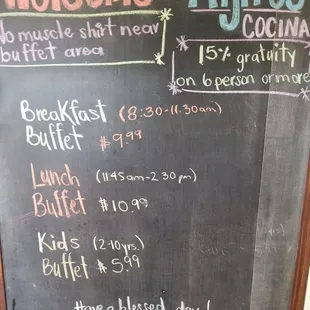 Welcome
No muscle shirt near
buffet area
COCINA
15% gratuity
on 6 person or more
Breakfast (8:30-11.30am)
Buffet $9.99
Lunch (1145am-2.30pm)
Buffet $10.99
Kids (2-10yrs.)
Buffet $5.99
Have a blessed day!